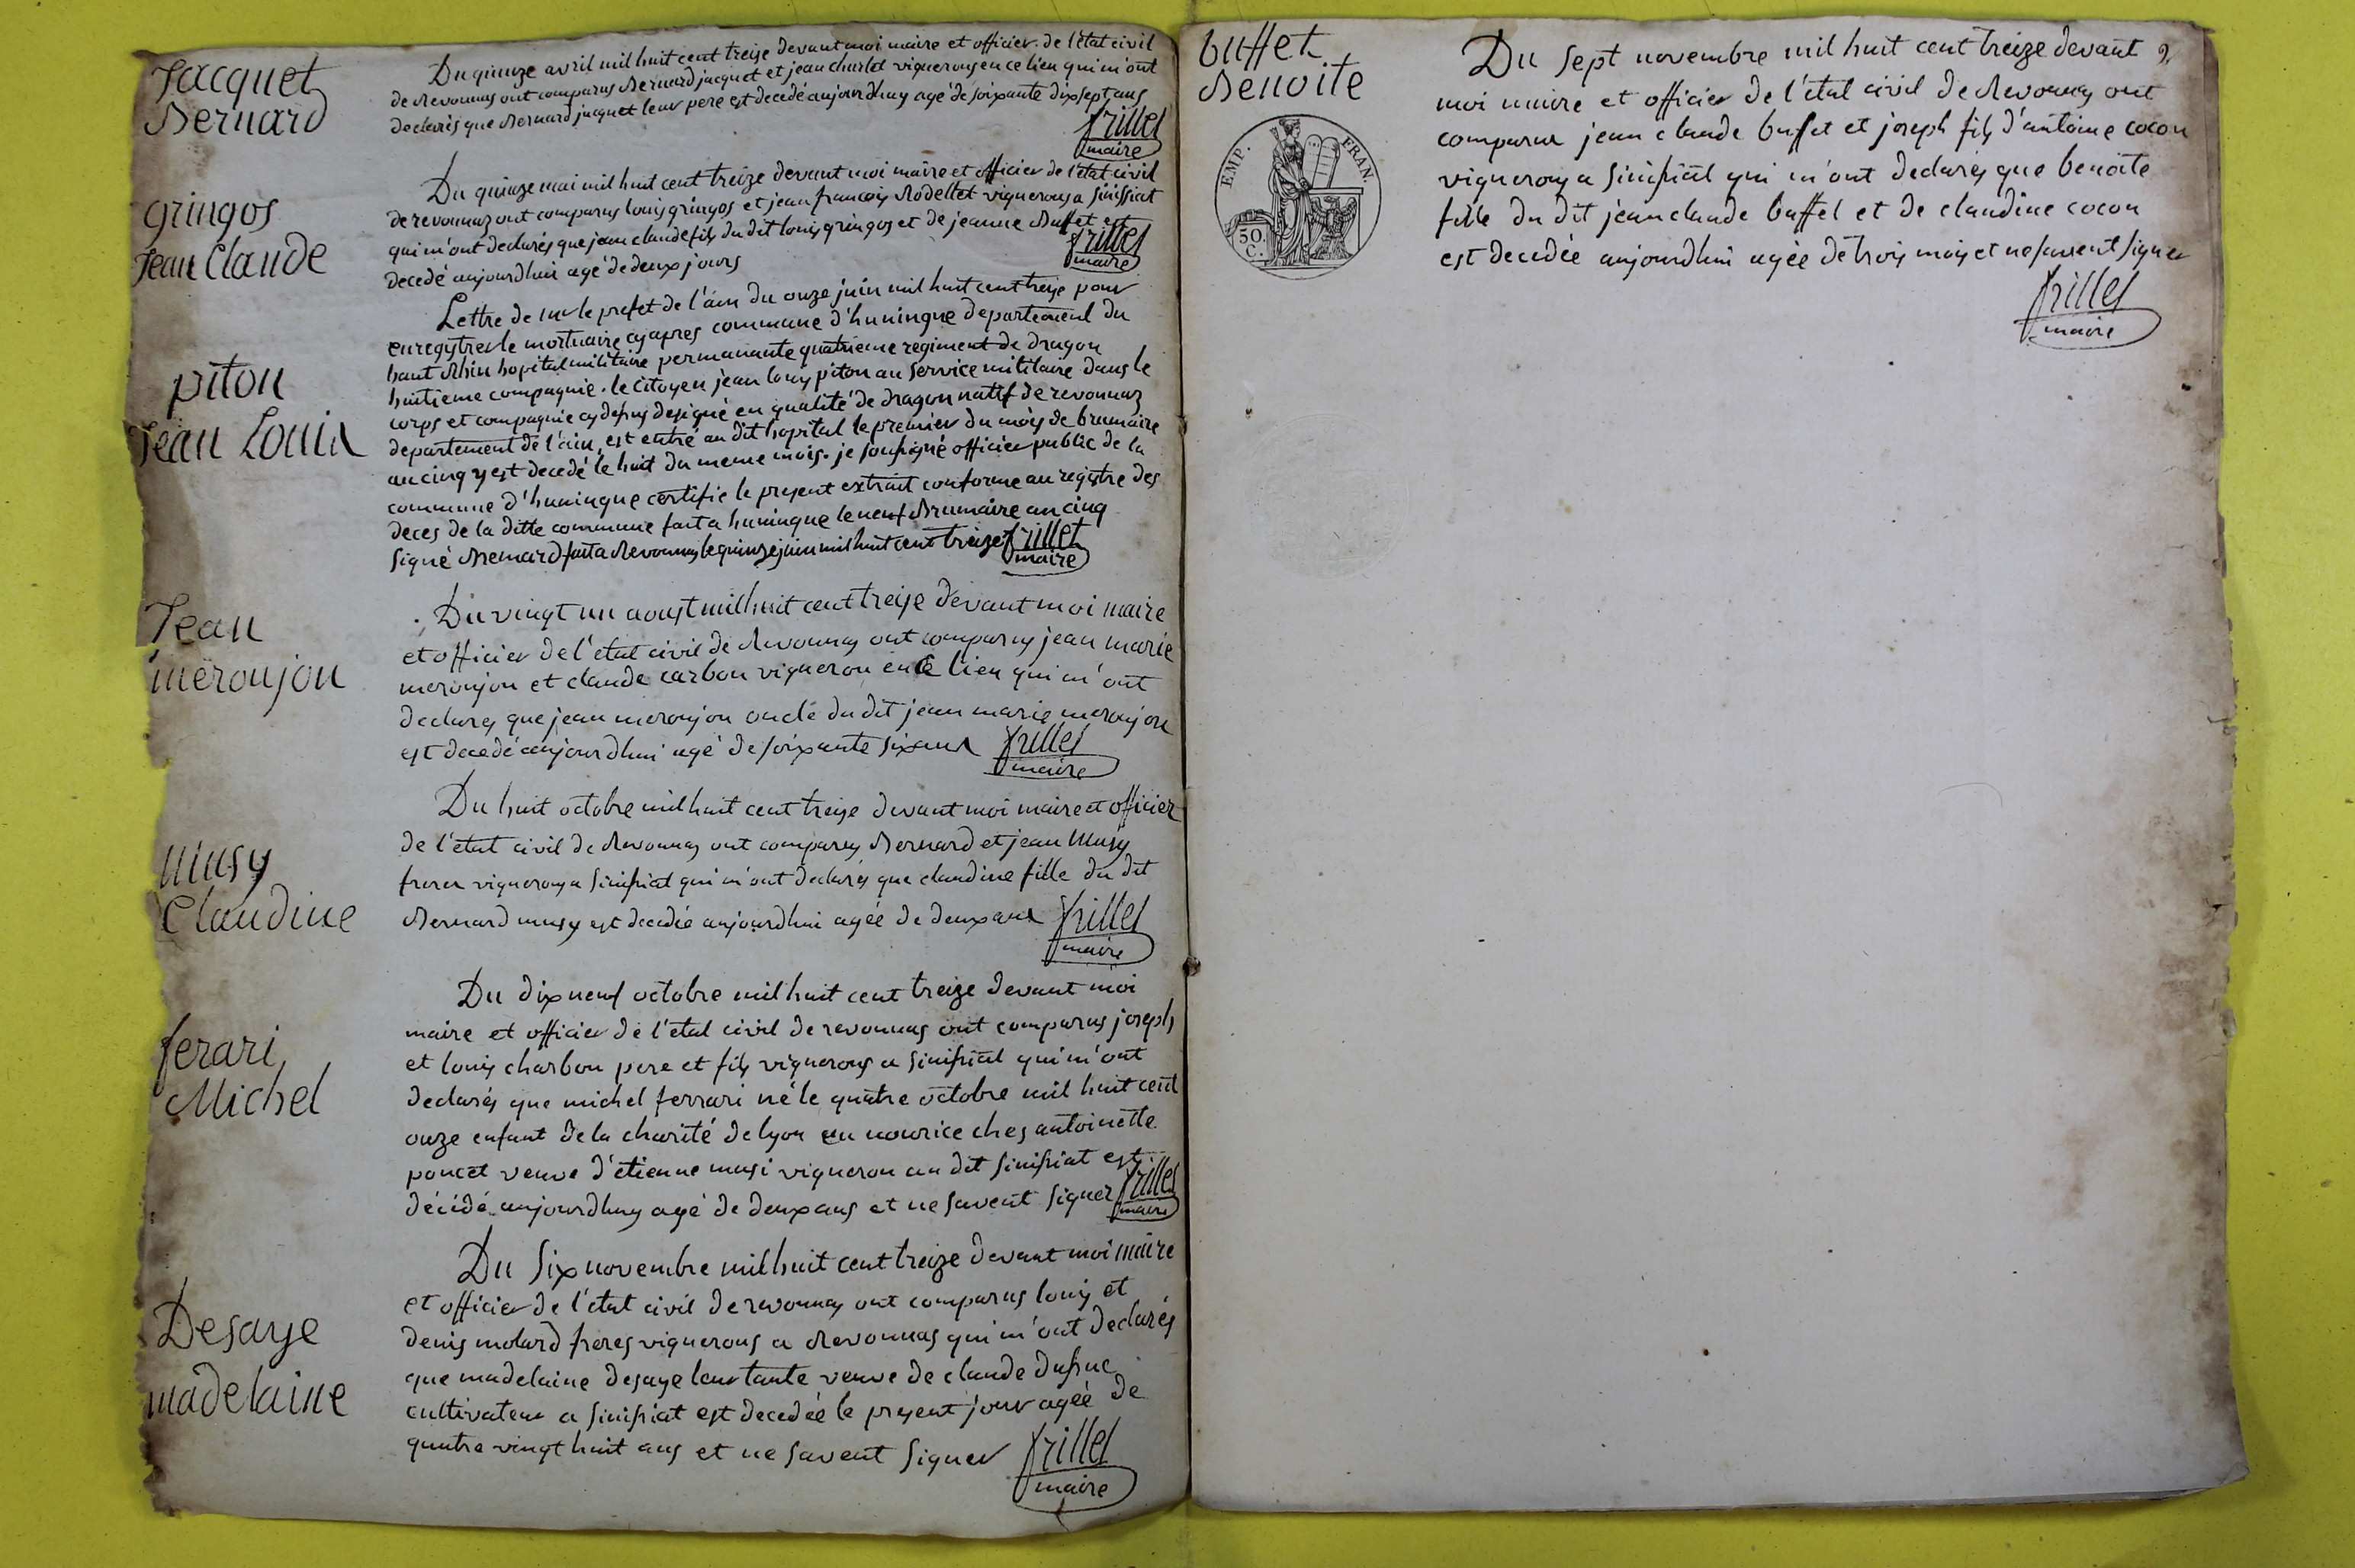 Jacquet
Bernard
Du quinze avril mil huit cent treize devant moi maire et officier de l'état civil
de Revonnas ont comparus Bernard jacquet et jean charlet vignerons en ce lieu qui m'ont
declarés que Bernard jacquet leur pere est decedé aujourdhuy agé de soixante dix sept ans
frillet
maire
gringos
Jean Claude
Du quinze mai mil huit cent treize devant moi maire et officier de l'état civil
de revonnaz ont comparus louis gringos et jean françois Rodellet vignerons a sinissiat
qui m'ont declarés que jean claude fils du dit louis gringos et de jeanne Buffet est
decedé aujourdhui agé de deux jours
frillet
maire
piton
Jean Louis
Lettre de mr le prefet de l'ain du onze juin mil huit cent treize pour
enregistrer le mortuaire cy apres commune d'huningue departement du
haut Rhin hopital militaire permanante quatrieme regiment de dragon
huitieme compagnie. le citoyen jean louis piton au service militaire dans le
corps et compagnie cy dessus designé en qualité de dragon natif de revonnaz
departement de l'ain, est entré au dit hopital le premier du mois de brumaire
an cinq y est decedé le huit du meme mois. je soussigné officier public de la
commune d'huningue certifie le present extrait conforme au registre des
deces de la ditte commune fait a huningue le neuf Brumaire an cinq
signé Bemard fait a Revonnas le quinze juin mil huit cent treize frillet
maire
Jean
meroujon
Du vingt un aoust mil huit cent treize devant moi maire
et officier de l'état civil de Revonnas ont comparus jean marie
meroujon et claude carbon vigneron en ce lieu qui m'ont
declarés que jean meroujon oncle du dit jean marie meroujon
est decedé aujourdhui agé de soixante six ans frillet
maire
Musy
Claudine
Du huit octobre mil huit cent treize devant moi maire et officier
de l'état civil de Revonnas ont comparus Bernard et jean Musy
freres vignerons a sinissiat qui m'ont declarés que claudine fille du dit
Bernard musy est decedée aujourdhui agée de deux ans frillet
maire
ferari
Michel
Du dix neuf octobre mil huit cent treize devant moi
maire et officier de l'état civil de revonnas ont comparus joseph
et louis charbon pere et fils vignerons a sinissiat qui m'ont
declarés que michel ferrari né le quatre octobre mil huit cent
onze enfant de la charité de lyon en nourice ches antoinette
poncet veuve d'étienne musi vigneron au dit sinissiat est
décédé aujourdhuy agé de deux ans et ne savent signer frillet
maire
Desaye
madelaine
Du six novembre mil huit cent treize devant moi maire
et officier de l'état civil de revonnas ont comparus louis et
denis molard freres vignerons a Revonnas qui m'ont declarés
que madelaine desaye leur tante veuve de claude dussuc
cultivateur a sinissiat est decedée le present jour agée de
quatre vingt huit ans et ne savent signer frillet
maire
buffet
Benoite
EMP. FRAN.
50.
C.
Du sept novembre mil huit cent treize devant 2.
moi maire et officier de l'état civil de Revonnas ont
comparus jean claude buffet et joseph fils d'antoine cocon
vignerons a sinissiat qui m'ont declarés que benoite
fille du dit jean claude buffet et de claudine cocon
est decedée aujourdhui agée de trois mois et ne savent signer
frillet
maire